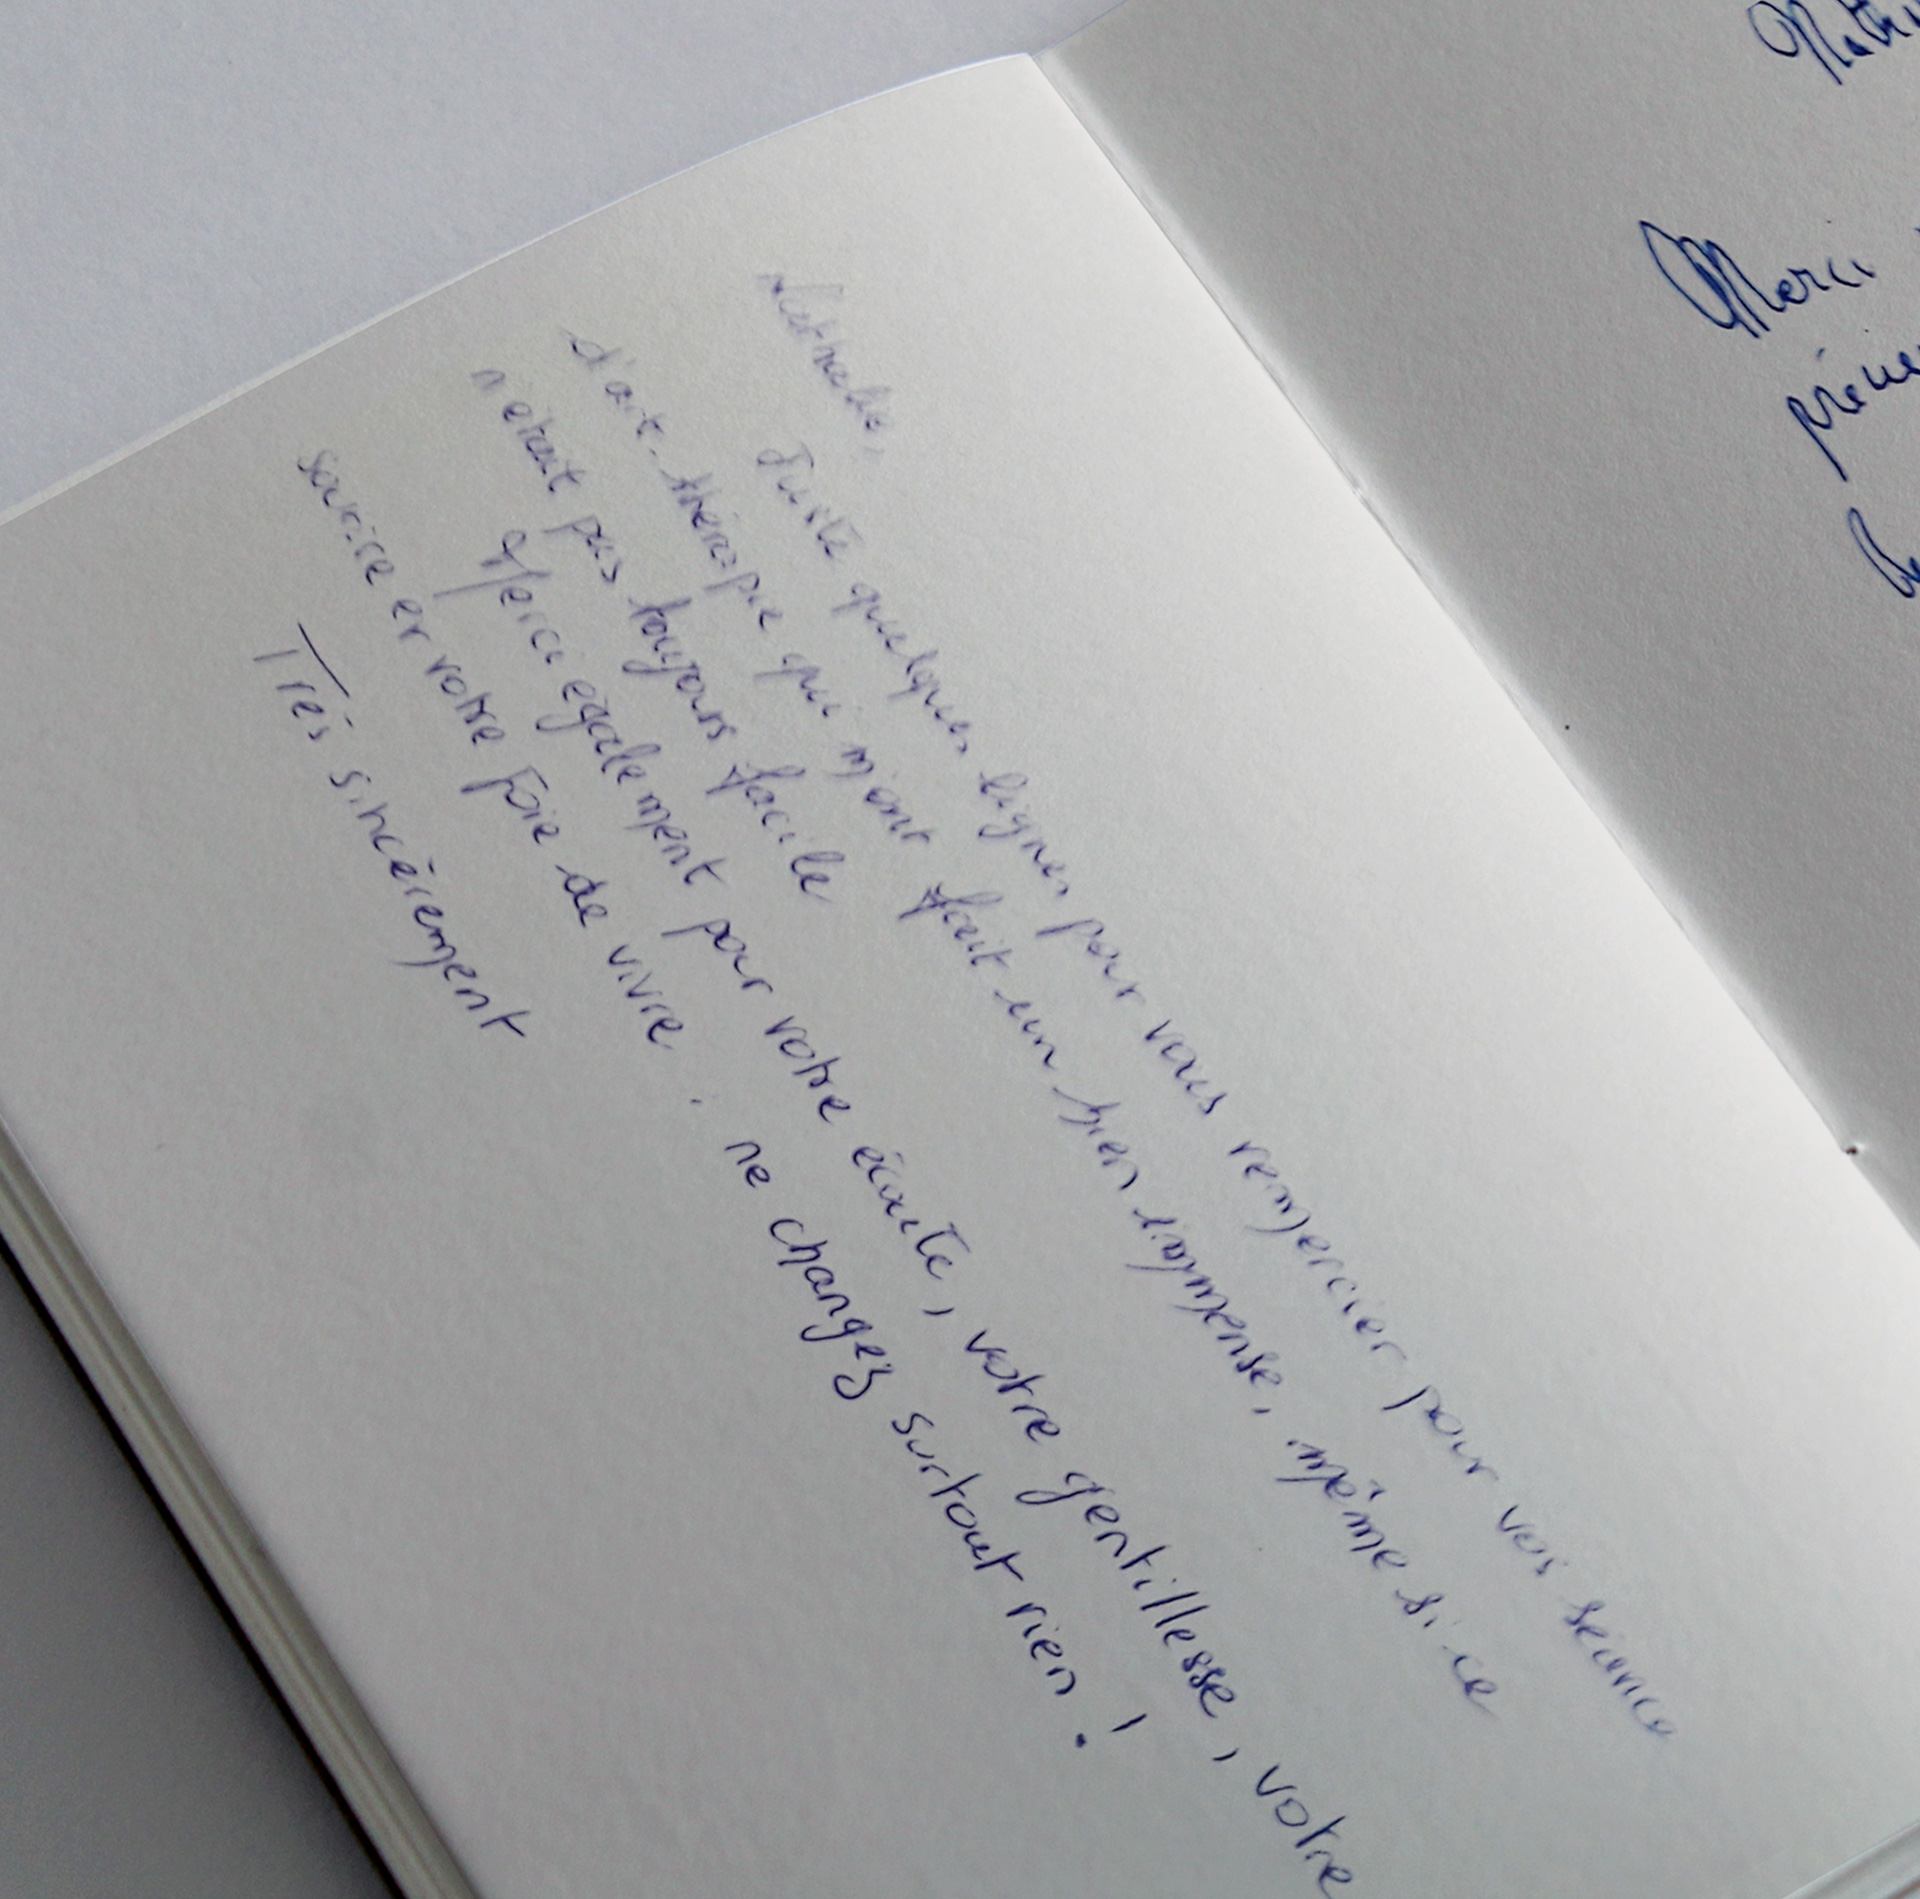 Nathalie,
Juste quelques lignes pour vous remercier pour vos séance
d'art-thérapie qui m'ont fait un bien immense, même si ce
n'était pas toujours facile
Merci également pour votre écoute, votre gentillesse, votre
sourire et votre joie de vivre. ne changez surtout rien !
Très sincèrement
Merci